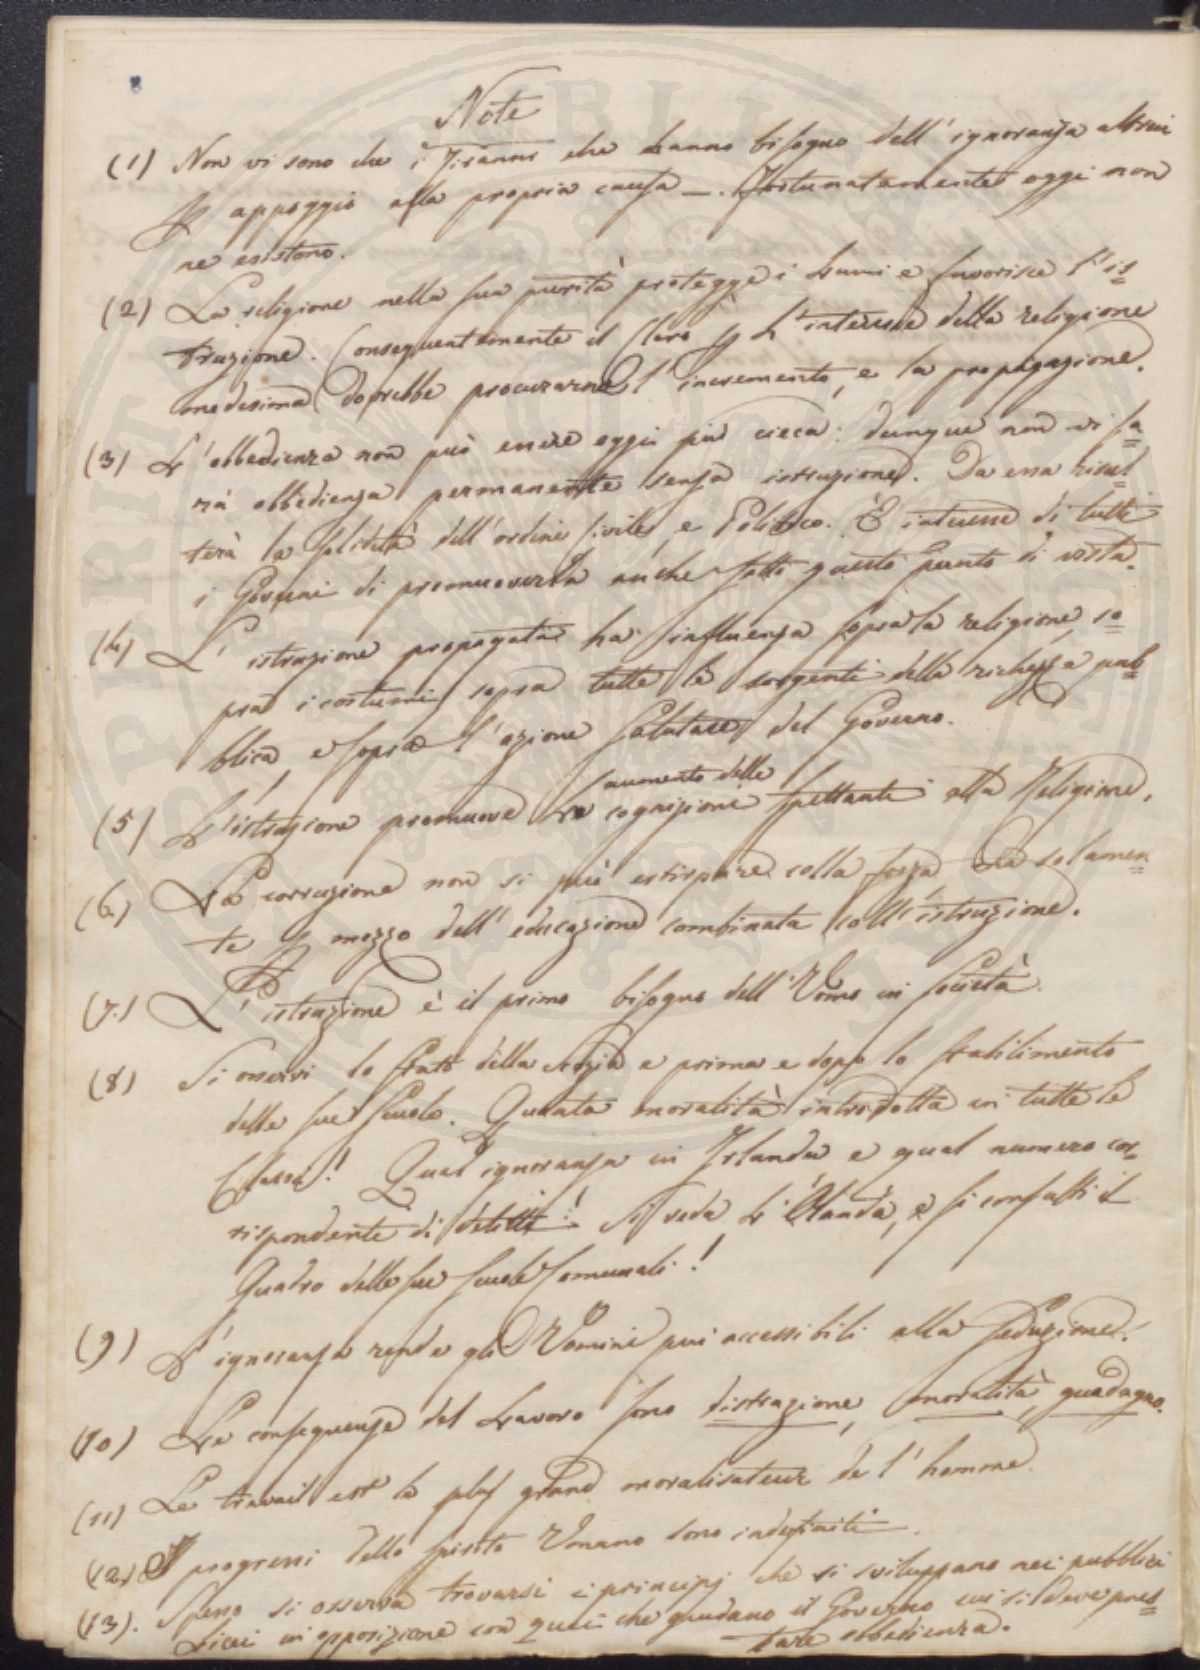 Note
(1) Non vi sono che i Tiranni che hanno bisogno dell'ignoranza altrui
appoggio alla propria causa —. Fortunatamente oggi non
ne esistono.
(2) La religione nella sua purità protegge i Lumi e favorisce l'is=
truzione. Conseguentemente il Clero L'interesse della religione
medesima dovrebbe procurarne l'incremento, e la propagazione.
(3) L'obbedienza non può essere oggi più cieca: dunque non vi sa=
rà obbedienza permanente senza istruzione. Da essa risul=
terà la solidità dell'ordine Civile, e Politico. È interesse di tutti
i Governi di promuoverla anche sotto questo punto di vista.
(4) L'istruzione propagata ha influenza sopra la religione, so=
pra i costumi, sopra tutte le sorgenti della richezza pub=
blica, e sopra l'azione salutare del Governo.
aumento delle
(5) L'istruzione promuove cognizioni spettanti alla Religione.
(6.) La corruzione non si può estirpare colla forza solamen=
te mezzo dell'educazione combinata coll'istruzione.
(7.) L'istruzione è il primo bisogno dell'Uomo in società.
(8) Si osservi lo stato della Scozia e prima e dopo lo stabilimento
delle sue Scuole. Quanta moralità introdotta in tutte le
Classi! Qual ignoranza in Irlanda e qual numero cor=
rispondente di delitti! Si veda L'Olanda, e si consulti il
Quadro delle sue Scuole Comunali!
(9) L'ignoranza rende gli Uomini più accessibili alla seduzione.
(10) Le conseguenze del Lavoro sono distrazione, moralità, guadagno.
(11) Le travail est le plus grand moralisateur de l'homme.
(12) I progressi dello spirito Umano sono indefiniti.
(13). Spesso si osserva trovarsi i principj che si sviluppano nei pubblici
Licei in opposizione con quei che guidano il Governo cui si deve pres=
tare obbedienza.